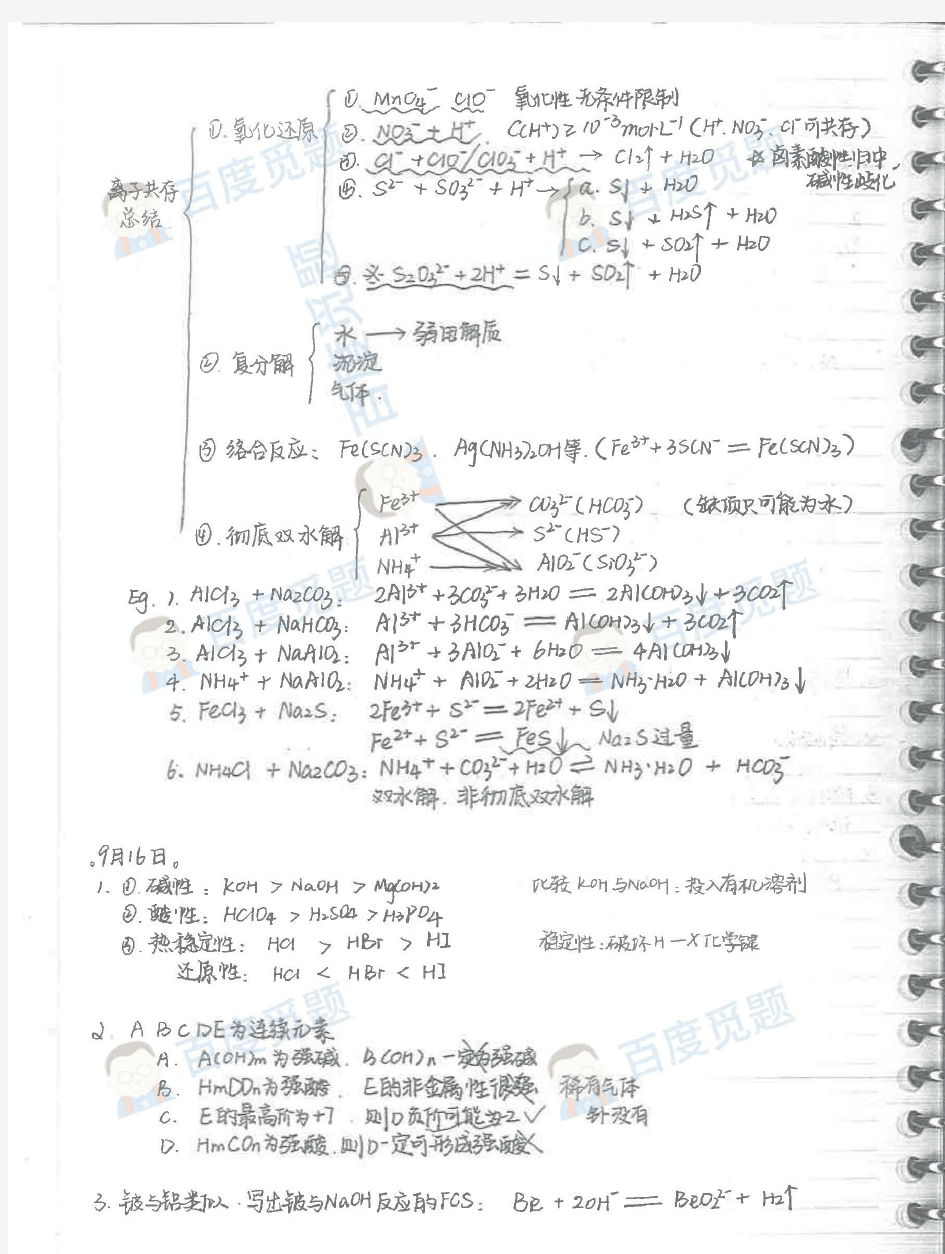 离子共存
总结
①.氧化还原
①. MnO4⁻ ClO⁻ 氧化性无条件限制
②. NO3⁻ + H⁺ C(H⁺)≥10⁻³mol·L⁻¹ (H⁺、NO3⁻、Cl⁻可共存)
③. Cl⁻ + ClO⁻/ClO3⁻ + H⁺ → Cl2↑ + H2O 卤素酸性归中,
碱性歧化
④. S²⁻ + SO3²⁻ + H⁺ → a. S↓ + H2O
b. S↓ + H2S↑ + H2O
c. S↓ + SO2↑ + H2O
⑤. ※ S2O3²⁻ + 2H⁺ = S↓ + SO2↑ + H2O
②. 复分解
水 → 弱电解质
沉淀
气体.
③ 络合反应: Fe(SCN)3 . Ag(NH3)2OH等. (Fe³⁺ + 3SCN⁻ = Fe(SCN)3)
④. 彻底双水解
Fe³⁺ CO3²⁻(HCO3⁻) (缺项只可能为水)
Al³⁺ S²⁻(HS⁻)
NH4⁺ AlO2⁻(SiO3²⁻)
Eg. 1. AlCl3 + Na2CO3: 2Al³⁺ + 3CO3²⁻ + 3H2O = 2Al(OH)3↓ + 3CO2↑
2. AlCl3 + NaHCO3: Al³⁺ + 3HCO3⁻ = Al(OH)3↓ + 3CO2↑
3. AlCl3 + NaAlO2: Al³⁺ + 3AlO2⁻ + 6H2O = 4Al(OH)3↓
4. NH4⁺ + NaAlO2: NH4⁺ + AlO2⁻ + 2H2O = NH3·H2O + Al(OH)3↓
5. FeCl3 + Na2S: 2Fe³⁺ + S²⁻ = 2Fe²⁺ + S↓
Fe²⁺ + S²⁻ = FeS↓ Na2S过量
6. NH4Cl + Na2CO3: NH4⁺ + CO3²⁻ + H2O ⇌ NH3·H2O + HCO3⁻
双水解. 非彻底双水解
。9月16日。
1. ①. 碱性: KOH > NaOH > Mg(OH)2 比较KOH与NaOH: 投入有机溶剂
②. 酸性: HClO4 > H2SO4 > H3PO4
③. 热稳定性: HCl > HBr > HI 稳定性:破坏H—X化学键
还原性: HCl < HBr < HI
2. A B C D E为连续元素
A. A(OH)m为强碱. B(OH)n一定为强碱
B. HmDOn为强酸. E的非金属性很强 稀有气体
C. E的最高价为+7. 则D负价可能为-2 √ 针没有
D. HmCOn为强酸. 则D一定可形成强酸 ×
3. 铍与铝类似. 写出铍与NaOH反应的FCS: Be + 2OH⁻ = BeO2²⁻ + H2↑
百度觅题
百度觅题
百度觅题
百度觅题
百度觅题
百度觅题
百度觅题